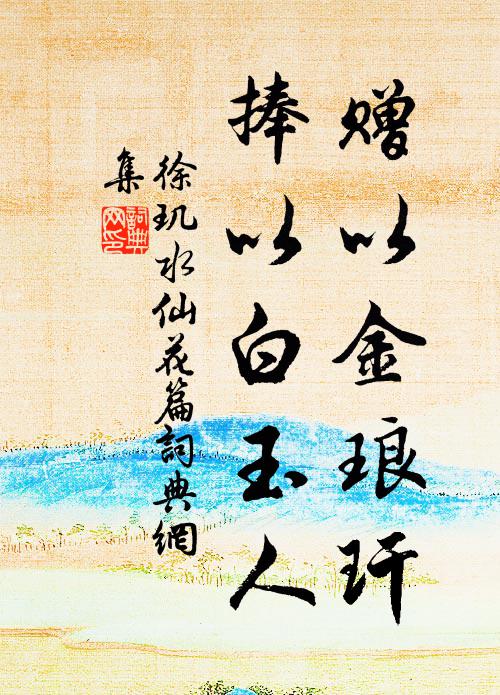 赠以金琅玕
捧以白玉人
徐玑水仙花篇詞典網
集
詞典网印